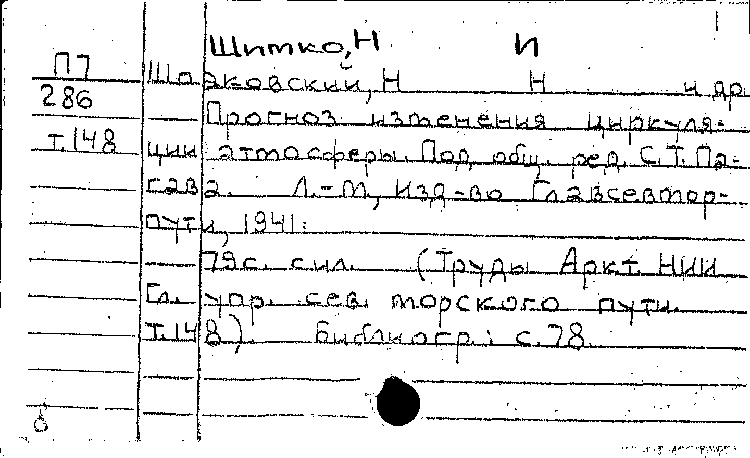 Шитко, Н И
П7
286
т.148
Шаяковский, Н Н и др.
Прогноз изменения циркуля-
ции атмосферы. Под общ. ред. С.Т. Па-
гава. Л.-М, Изд-во Главсевмор-
пути, 1941.
79с. с ил. (Труды Аркт. НИИ
Гл. упр. сев. морского пути.
Т.148). Библиогр.: с.78.